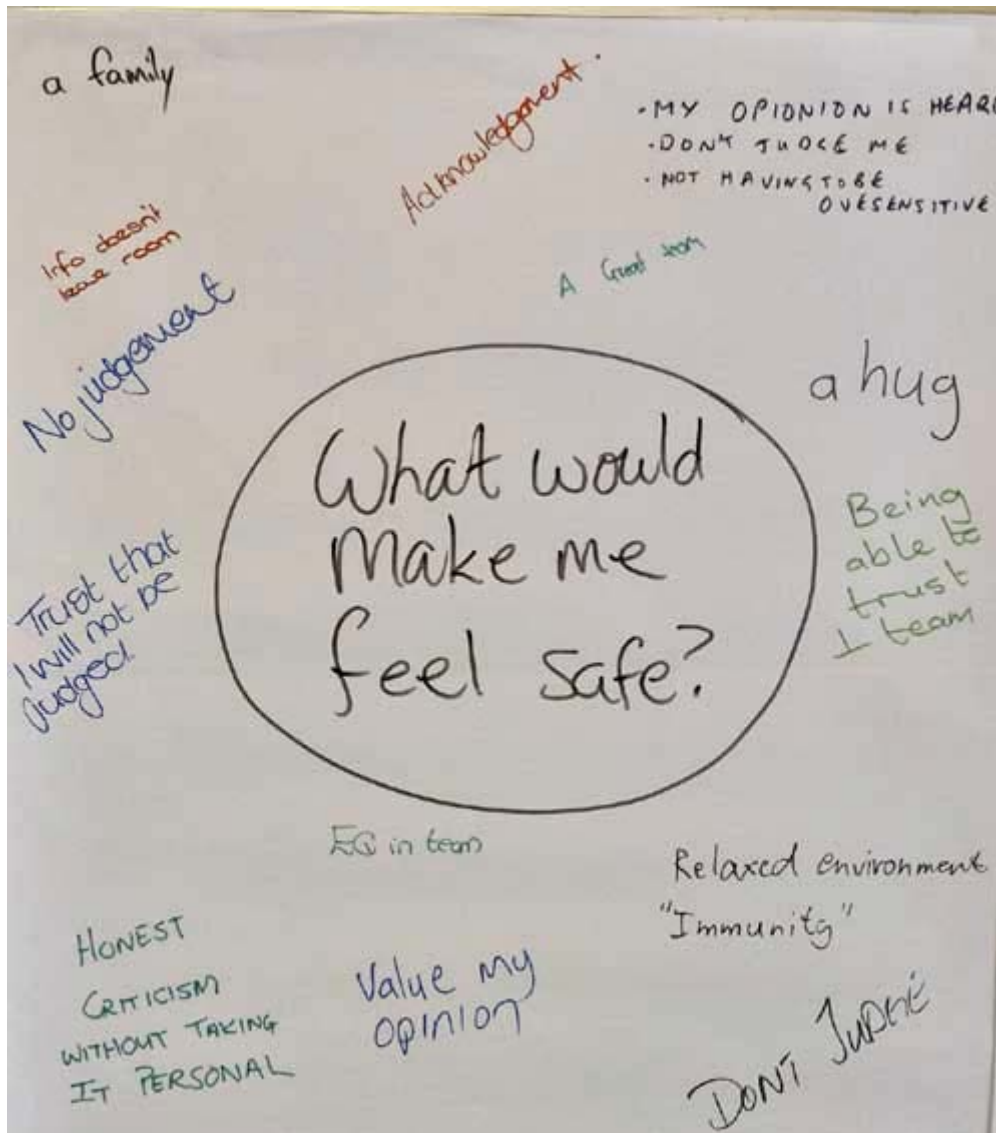 a family
Acknowledgment.
• MY OPIONION IS HEARD
• DON'T JUDGE ME
• NOT HAVING TO BE
OVESENSITIVE
Info doesn't
leave room
A Great team
No judgement
a hug
What would
Make me
feel safe?
Being
able to
trust
team
Trust that
I will not be
judged.
EQ in team
Relaxed environment
"Immunity"
HONEST
CRITICISM
WITHOUT TAKING
IT PERSONAL
Value my
opinion
DONT JUDGE